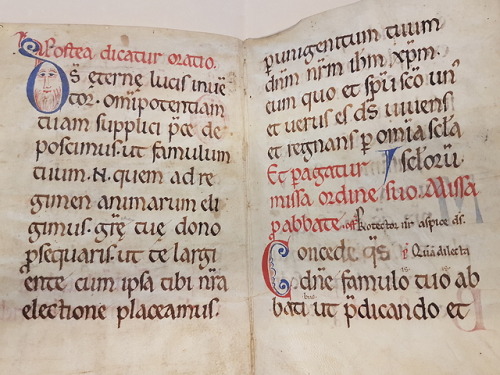 Postea dicatur oratio.
Ds eterne lucis inue
tor. omīpotentiam
tuam supplici p̄ce de
poscimus. ut famulum
tuum. N. quem ad re
gimen animarum eli
gimus. grē tuę dono
ꝓsequaris. ut te largi
ente cum ipsa tibi nr̄a
electione placeamus.
ꝑ unigenitum tuum
dnm̄ nr̄m ihm̄ xp̄m.
cum quo et sp̄u sc̄o un'
et uerus es ds̄ uiuens
et regnans ꝑ om̄ia sc̄la
sc̄lorū
Et ꝑagatur
missa ordine suo. Missa
ꝓ abbate. Protector nr̄ aspice ds.
Concede q̄s
dn̄e famulo tuo ab
bati ut p̄dicando et